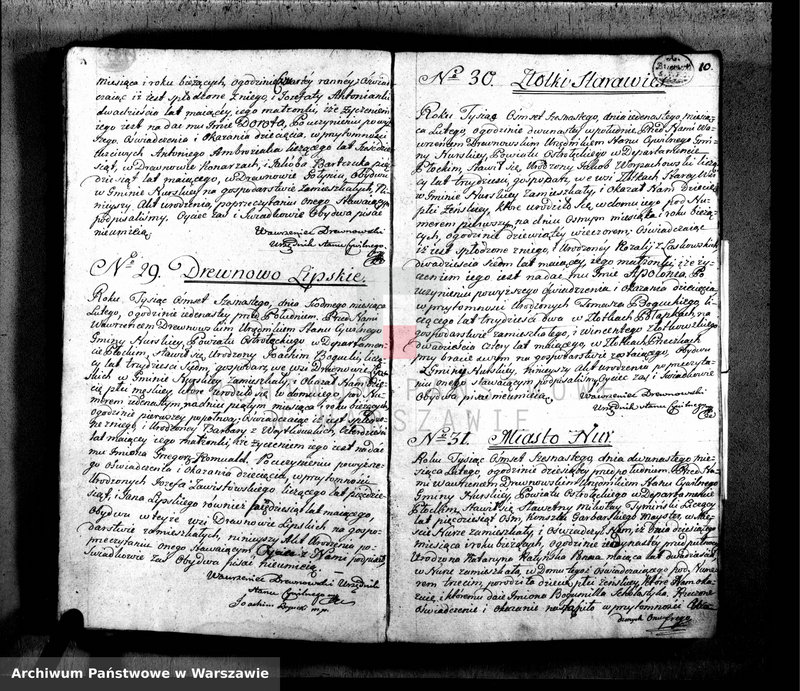 miesiąca i roku bieżących, ogodzinie czwartey ranney, oświad-
czaiąc iż iest spłodzone z niego, i Jozefaty Antonianki
dwadzieścia lat maiącey, iego małżonki, i że życzeniem
iego iest nadać mu Imie Dorota, Po uczynieniu powy-
ższego Oświadczenia i Okazania dziecięcia, w przytomności
Uczciwych Antoniego Ambroziaka liczącego lat
w Drewnowie Konarzach, i Jakoba Bartczuka pię-
dziesiąt lat maiącego, w Drewnowie Gołyniu, Obydwu
w Gminie Nurskiey na gospodarstwie zamieszkałych, Ni-
nieyszy Akt Urodzenia, po przeczytaniu onego Stawaiącym
podpisaliśmy. Oyciec zaś i Swiadkowie Obydwa pisać
nieumieią
Wawrzeniec Drewnowski
Urzędnik Stanu Cywilnego.
No. 29. Drewnowo Lipskie.
Roku Tysiąc Ośmset Szesnastego, dnia Siodmego miesiąca
Lutego, o godzinie iedenastey przed Południem, Przed Nami
Wawrzeńcem Drewnowskim Urzędnikiem Stanu Cywilnego
Gminy Nurskiey, Powiatu Ostrołęckiego w Departamen-
cie Płockim, Stawił się Urodzony Joachim Bogucki, liczą-
cy lat trzydzieści Siedm, gospodarz, we wsi Drewnowie Lip-
skich w Gminie Nurskiey zamieszkały i Okazał Nam Dzie-
cie płci męskiey, ktore urodziło się w domu iego pod Nu-
merem iedenastym, na dniu piątym miesiąca i roku bieżących
ogodzinie pierwszey popółnocy. Oświadczaiąc iż iest spłodzo-
ne z niego, i Urodzoney Barbary z Woytkowskich, Czterdzieści
lat maiącey i iego małżonki, i że życzeniem iego iest nadać
mu Imiona Grzegorz Romuald, Po uczynieniu powyższe-
go oświadczenia i Okazania dziecięcia, w przytomności
Urodzonych Jozefa Zawistowskiego liczącego lat pięćdzie-
siąt, i Jana Lipskiego rownież pięćdziesiąt lat maiącego,
Obydwu w teyże wsi Drewnowie Lipskich na gospo-
darstwie zamieszkałych, ninieyszy Akt Urodzenia po
przeczytaniu onego Stawaiącym, Oyciec z Nami podpisał
Swiadkowie zaś Obydwa pisać nieumieią
Wawrzeniec Drewnowski Urzędnik
Stanu Cywilnego
Joachim Bogucki mp.
10.
No. 30. Złotki Starawieś
Roku Tysiąc Ośmset Szesnastego, dnia iedenastego, miesią-
ca Lutego, ogodzinie dwunastey w południe, Przed Nami Wa-
wrzeńcem Drewnowskim Urzędnikiem Stanu Cywilnego Gmi-
ny Nurskiey, Powiatu Ostrołęckiego w Departamencie
Płockim, Stawił się Urodzony Jakob Wyszomirski liczą-
cy lat trzydzieści, gospodarz, we wsi Złotkach Starey wsi
w Gminie Nurskiey zamieszkały, i Okazał Nam Dziecie
płci Żeńskiey, które urodziło się w domu iego pod Nu-
merem pierwszym, na dniu Osmym miesiąca i roku bieżą-
cych, ogodzinie dziewiątey wieczorem; Oświadczaiąc
iż iest spłodzone z niego, i Urodzoney Rozalij z Laskowskich
dwadzieścia Siedm lat maiącey, iego małżonki, i że ży-
czeniem iego iest nadać mu Imie Apolonia. Po
uczynieniu powyższego Oświadczenia i Okazania dziecięcia,
w przytomności Urodzonych Tomasza Boguckiego li-
czącego lat trzydzieści dwa w Złotkach Płapkach, na
gospodarstwie zamieszkałego, i Wincentego Złotkowskiego
dwadzieścia cztery lat maiącego, w Złotkach
przy bracie swym na gospodarstwie zostaiącego, Obydwu
w Gminie Nurskiey, ninieyszy Akt Urodzenia po przeczyta-
niu onego stawaiącym podpisaliśmy, Oyciec zaś i Swiadkowie
Obydwa pisać nieumieią
Wawrzeniec Drewnowski
Urzędnik Stanu Cywilnego
No. 31. Miasto Nur
Roku Tysiąc Ośmset Szesnastego, dnia dwunastego mie-
siąca Lutego, ogodzinie dziesiątey przed południem, Przed Na-
mi Wawrzeńcem Drewnowskim Urzędnikiem Stanu Cywilnego
Gminy Nurskiey, Powiatu Ostrołęckiego w Departamencie
Płockim, Stawił się Sławetny Mikołay Tymiński Liczący
lat pięćdziesiąt Ośm, Konsztu Garbarskiego mayster, w Mie-
ście Nurze zamieszkały, i oświadczył Nam, iż dnia dziesiątego
miesiąca i roku bieżących, ogodzinie iedynastey przed południem
Urodzona Kataryna maiąca lat dwadzieścia
w Nurze zamieszkała, w Domu tegoż Oświadczaiącego pod Nume-
rem trzecim, porodziła dziecie płci żeńskiey, które Nam oka-
zuie, i któremu daie Imiona Bogumilla Scholastyka, Rzeczone
oświadczenie i okazanie nastąpiło w przytomności
Archiwum Państwowe w Warszawie